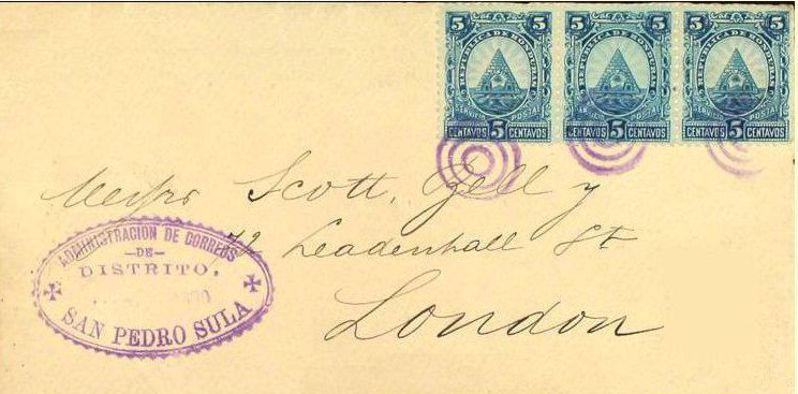 5 5 5 5 5 5
REPUBLICA DE HONDURAS REPUBLICA DE HONDURAS REPUBLICA DE HONDURAS
CENTAVOS 5 CENTAVOS CENTAVOS 5 CENTAVOS CENTAVOS 5 CENTAVOS
Messrs Scott, y
72 Leadenhall St
London
ADMINISTRACION DE CORREOS
-DE-
DISTRITO,
SAN PEDRO SULA